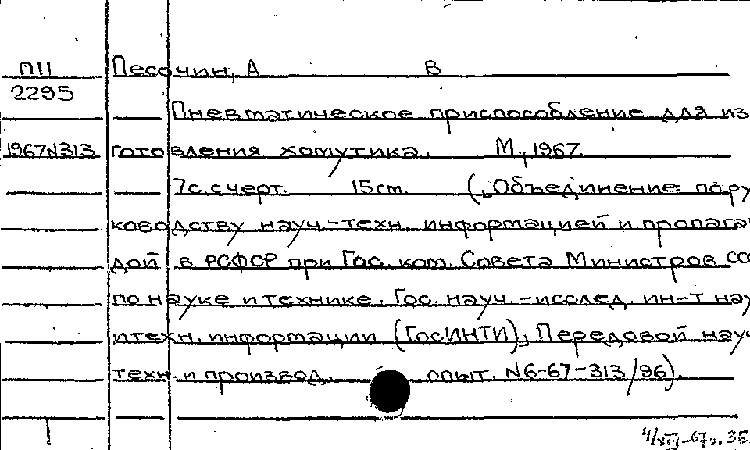 П11 Песочин, А В
2295
Пневматическое приспособление для из
1967N313 готовления хомутика. М., 1967.
7с.с черт. 15cm. („Объединение по ру
ководству науч.-техн. информацией и пропаган
дой в РСФСР при Гос. ком. Совета Министров СС
по науке и технике. Гос. науч.-исслед. ин-т нау
и техн. информации (ГосИНТИ), Передовой науч
техн. и производ. опыт. N6-67-313/96).